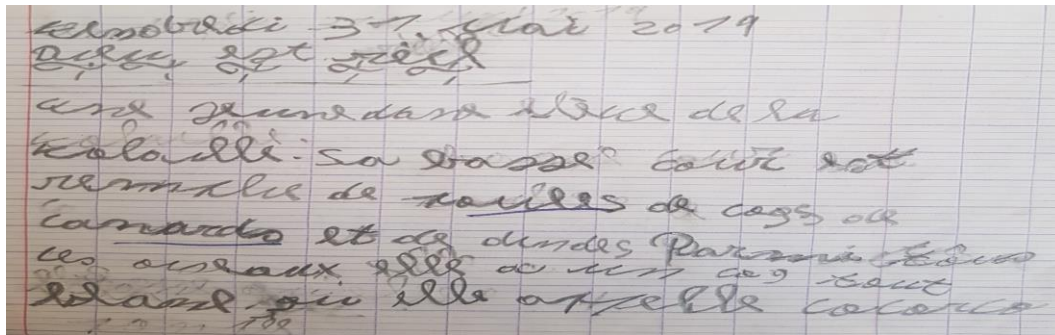 vendredi 31 Mai 2019
est réel
une jeune dame élève de la
volaille. Sa basse cour est
remplie de poules de coqs de
canards et de dindes Parmi tous
ces oiseaux elle a un coq tout
blanc qu'elle appelle cocorico